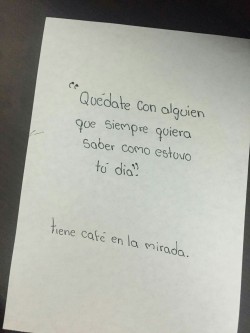 "Quédate con alguien
que siempre quiera
saber como estuvo
tú día".
tiene café en la mirada.